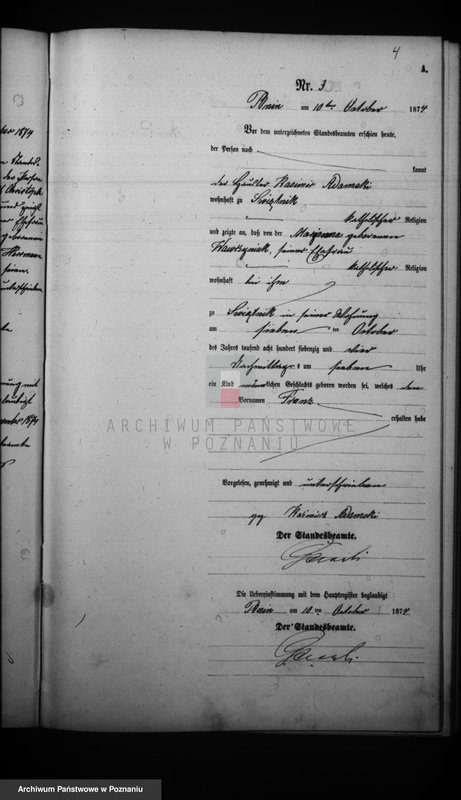 4
A.
Nr. 3
Bnin am 10ten October 1874
Vor dem unterzeichneten Standesbeamten erschien heute,
der Person nach
kannt
der Häusler Kasimir Adamski
wohnhaft zu Swiątnik
katholischer Religion
und zeigte an, daß von der Marianna geborenen
Wawrzyniak, seiner Ehefrau
katholischer Religion
wohnhaft bei ihm
zu Swiątnik in seiner Wohnung
am sieben ten October
des Jahres tausend acht hundert siebenzig und vier
Nachmittags um sieben Uhr
ein Kind männlichen Geschlechts geboren worden sei, welches den
Vornamen Franz
erhalten habe
ARCHIWUM PAŃSTWOWE
W POZNANIU
Vorgelesen, genehmigt und unterschrieben
gez. Kasimir Adamski
Der Standesbeamte.
Die Uebereinstimmung mit dem Hauptregister beglaubigt
Bnin am 10ten October 1874
Der Standesbeamte.
Archiwum Państwowe w Poznaniu